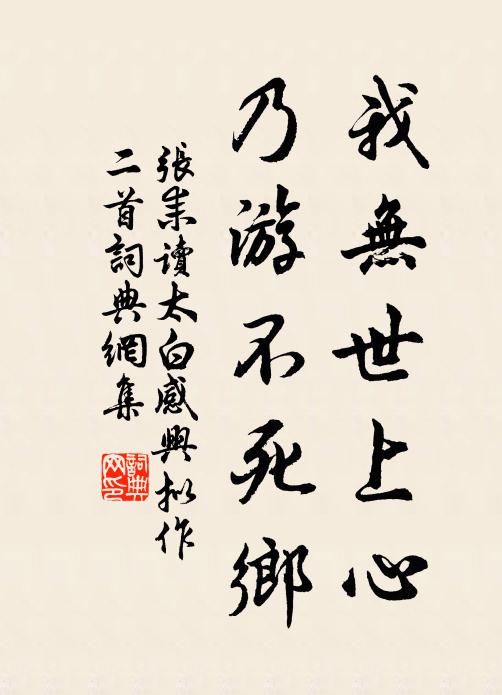 我無世上心
乃游不死鄉
張耒讀太白感興擬作
二首詞典網集
詞典
网印